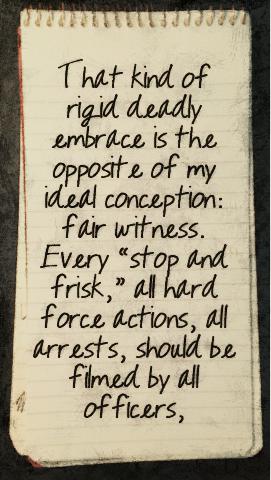 That kind of
rigid deadly
embrace is the
opposite of my
ideal conception:
fair witness.
Every “stop and
frisk,” all hard
force actions, all
arrests, should be
filmed by all
officers,